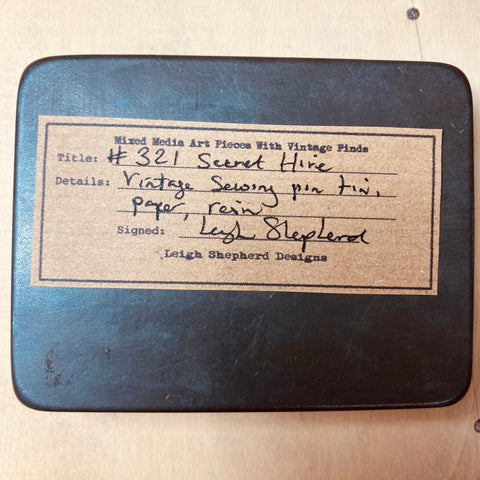 Mixed Media Art Pieces With Vintage Finds
Title: # 321 Secret Hire
Details: Vintage Sewing pin tin,
paper, resin
Signed: Leigh Shepherd
Leigh Shepherd Designs